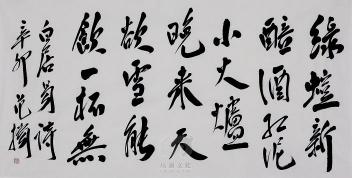 綠螘新
醅酒红泥
小火爐
晚来天
欲雪能
飲一杯無
白居易詩
辛卯